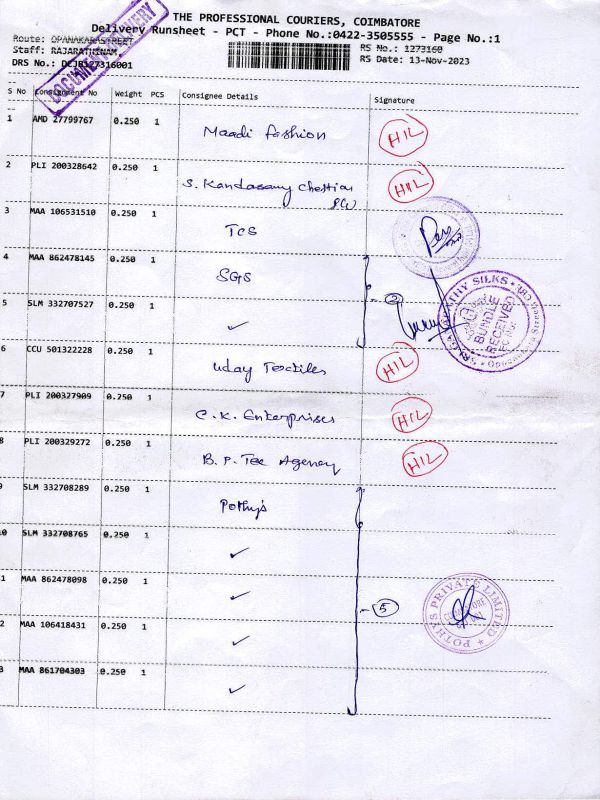 THE PROFESSIONAL COURIERS, COIMBATORE
Delivery Runsheet - PCT - Phone No.:0422-3505555 - Page No.:1
Route: OPANAKARASTREET
RS No.: 1273160
Staff: RAJARATHINAM,
RS Date: 13-Nov-2023
DRS No.: DCJB127316001
DOCUMENT DELIVERY
S No Consignment No Weight PCS Consignee Details Signature
1 AMD 27799767 0.250 1 Maadi fashion HIL
2 PLI 200328642 0.250 1 S. Kandasamy Chettiar HIL
3 MAA 106531510 0.250 1 TCS
4 MAA 862478145 0.250 1 SGS
5 SLM 332707527 0.250 1 ✓ - 2
SRI GANAPATHY SILKS
BUNDLE
RECEIVED
6 CCU 501322228 0.250 1 Uday Textiles HIL
7 PLI 200327909 0.250 1 C.K. Enterprises HIL
8 PLI 200329272 0.250 1 B.P. Tex Agency HIL
9 SLM 332708289 0.250 1 Pothy's
10 SLM 332708765 0.250 1 ✓
1 MAA 862478098 0.250 1 ✓ - 5
POTHYS PRIVATE LIMITED
2 MAA 106418431 0.250 1 ✓
3 MAA 861704303 0.250 1 ✓